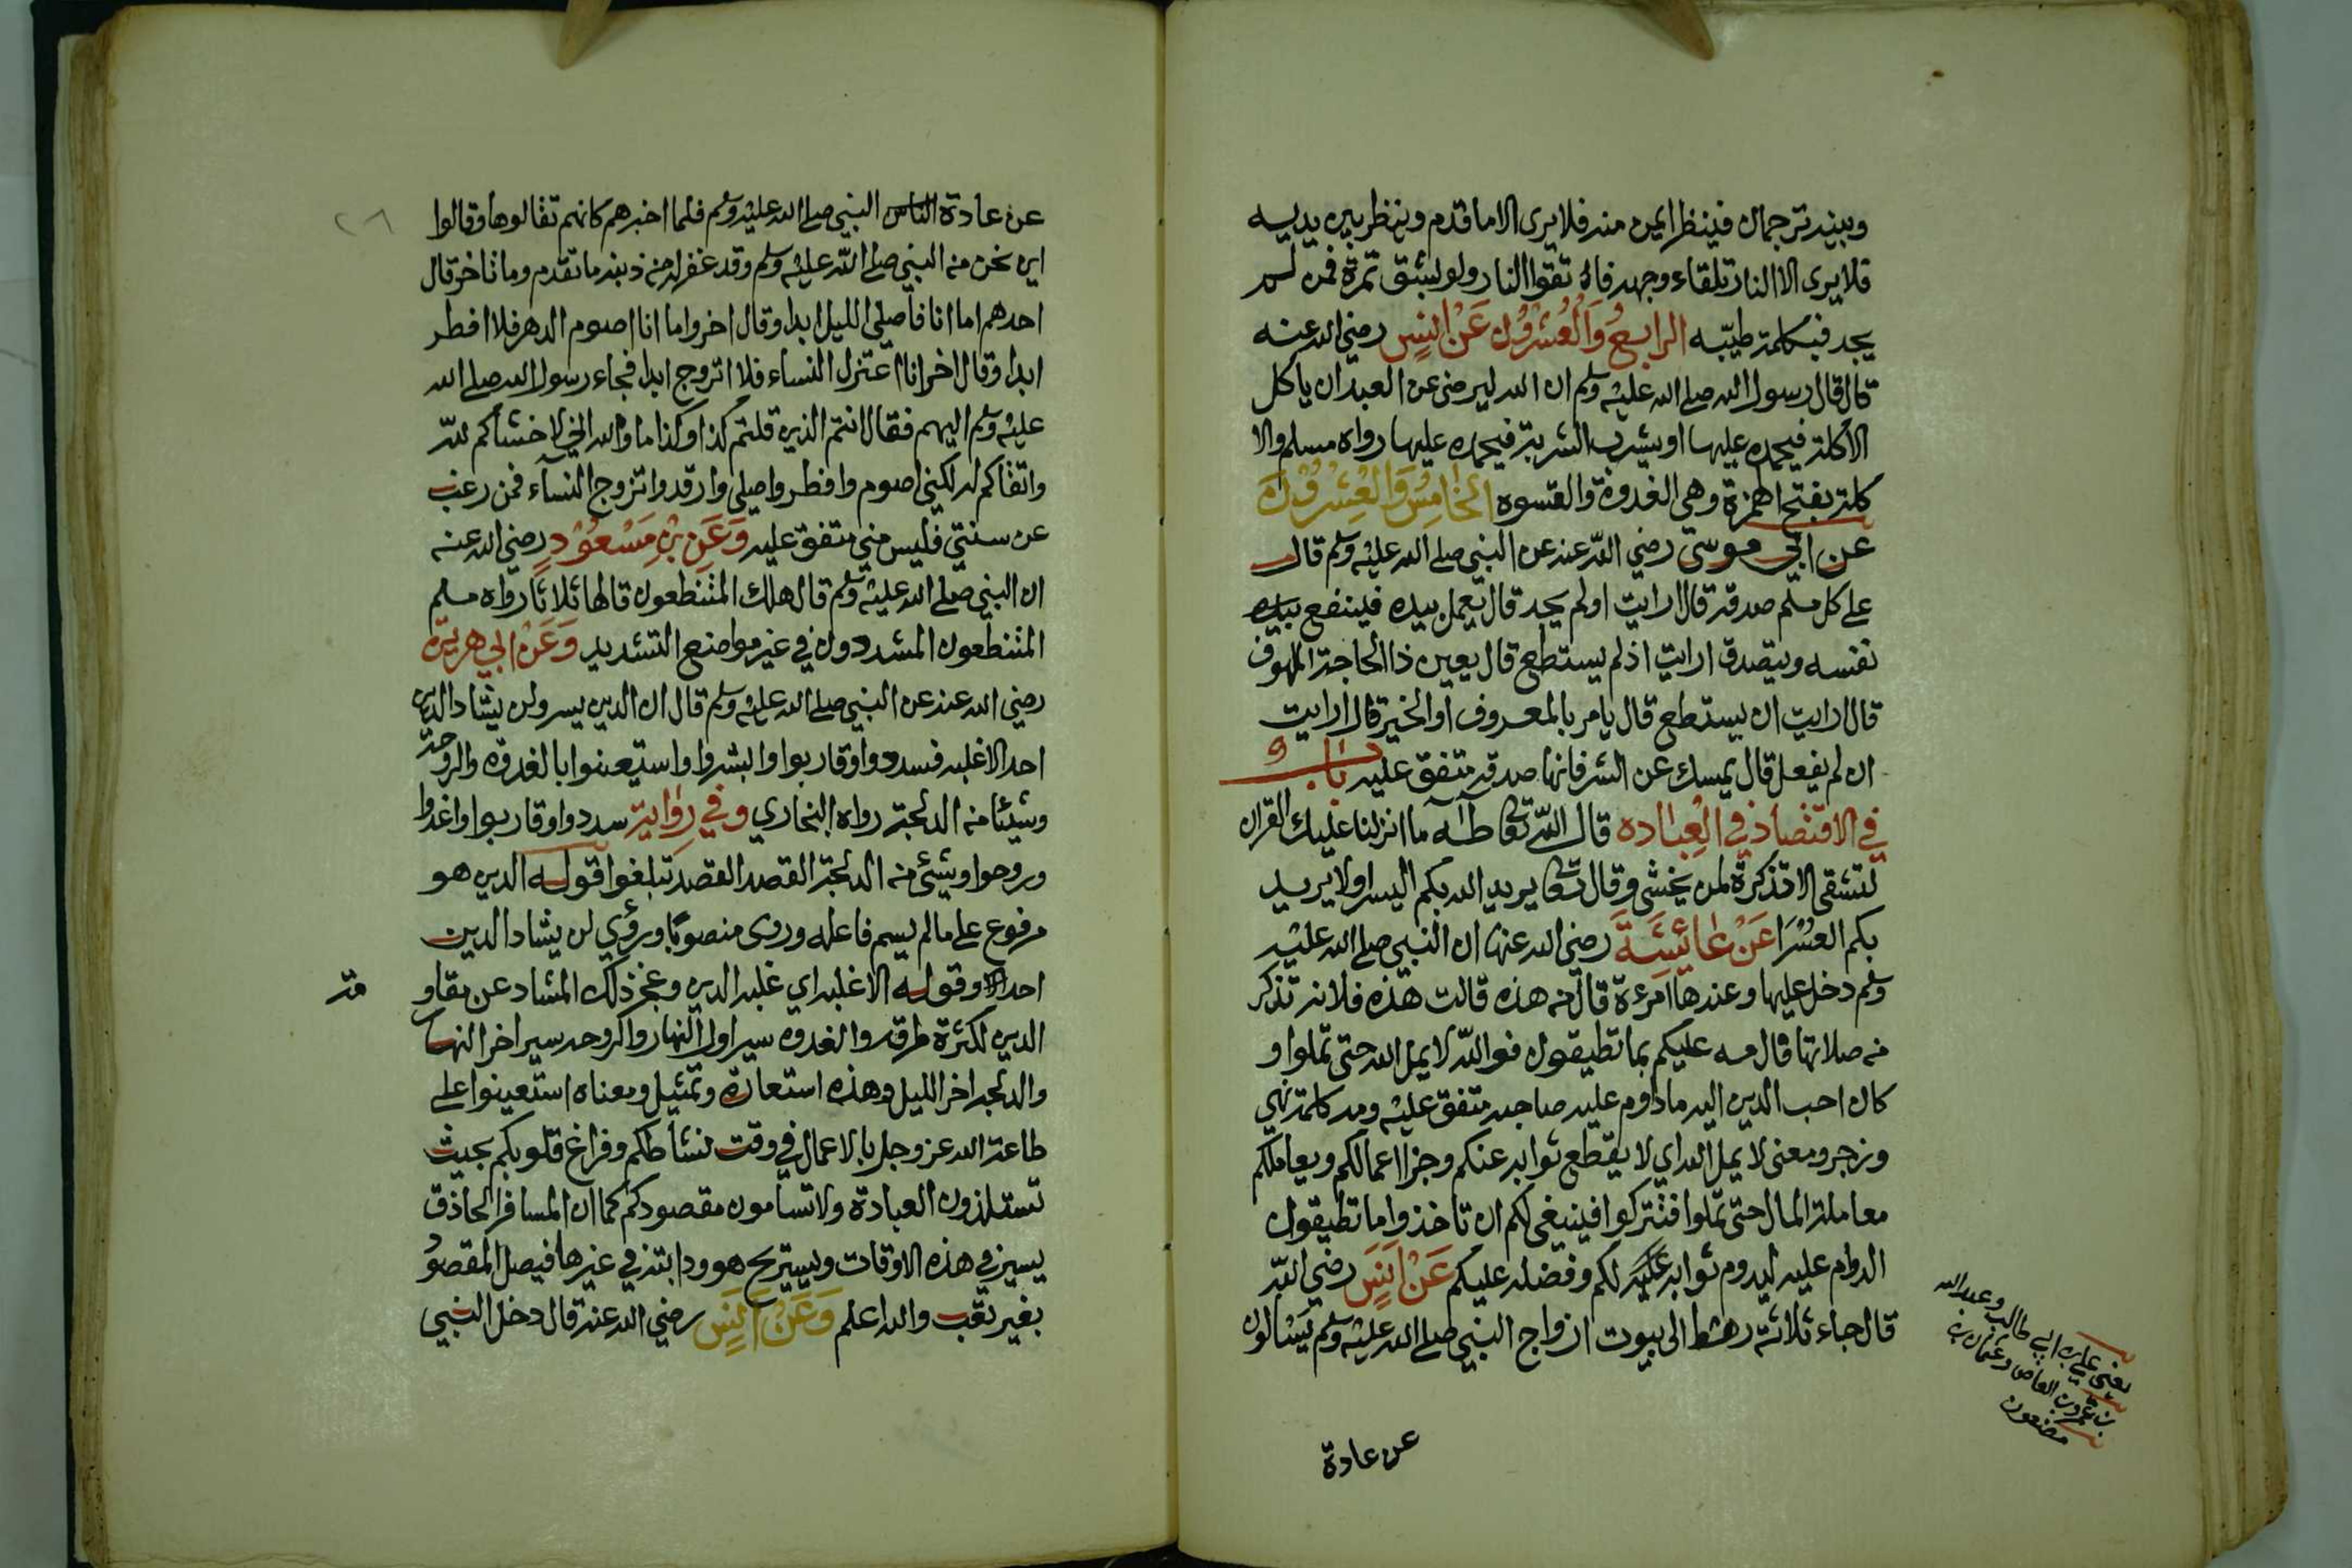 وبينه ترجمان فينظر ايمن منه فلا يرى الا ما قدم وينظر بين يديه
فلا يرى الا النار تلقاء وجهه فاتقوا النار ولو لبشق تمرة فمن لم
يجد فبكلمة طيّبه الرابع والعشرون عن انس رضي الله عنه
قال قال رسول الله صلى الله عليه وسلم ان الله ليرضى عن العبد ان ياكل
الأكلة فيحمده عليها او يشرب الشربة فيحمده عليها رواه مسلم والا
كلة بفتح الهمزة وهي الغدوة والعشوه الخامس والعشرون
عن ابي موسى رضي الله عنه عن النبي صلى الله عليه وسلم قال
على كل مسلم صدقة قال ارايت اولم يجد قال يعمل بيده فينفع بيده
نفسه ويتصدق ارايت اذ لم يستطع قال يعين ذا الحاجة الملهوف
قال ارايت ان يستطع قال يامر بالمعروف او الخير قال ارايت
ان لم يفعل قال يمسك عن الشر فانها صدقة متفق عليه باب
في الاقتصاد في العباده قال الله تعا طه ما انزلنا عليك القران
لتشقى الا تذكرة لمن يخشى وقال تعا يريد الله بكم اليسر ولا يريد
بكم العسرا عن عائشة رضي الله عنها ان النبي صلى الله عليه
وسلم دخل عليها وعندها امرءة قال من هذه قالت هذه فلانه تذكر
من صلاتها قال مه عليكم بما تطيقون فوالله لا يمل الله حتى تملوا و
كان احب الدين اليه ما داوم عليه صاحبه متفق عليه ومه كلمة نهي
وزجر ومعنى لا يمل الله اي لا يقطع ثوابه عنكم وجزا اعمالكم ويعاملكم
معاملة المال حتى تملوا فتتركوا فينبغي لكم ان تاخذوا ما تطيقون
الدوام عليه ليدوم ثوابه لكم وفضله عليكم عن انس رضي الله
قال جاء ثلاثة رهط الى بيوت ازواج النبي صلى الله عليه وسلم يسالون
يعني علي بن ابي طالب وعبد الله
بن عمرو بن العاص وعثمان بن
مضعون
عن عادة
عن عادة الناس النبي صلى الله عليه وسلم فلما اخبرهم كانهم تقالوها وقالوا
٢٦
اين نحن من النبي صلى الله عليه وسلم وقد غفر له من ذبنه ما تقدم وما تاخر قال
احدهم اما انا فاصلي الليل ابدا وقال اخر واما انا اصوم الدهر فلا افطر
ابدا وقال اخر انا اعتزل النساء فلا اتزوج ابدا فجاء رسول الله صلى الله
عليه وسلم اليهم فقال انتم الذين قلتم كذا وكذا ما والله اني لاخشاكم لله
واتقاكم له لكني اصوم وافطر واصلي وارقد واتزوج النساء فمن رغب
عن سنتي فليس مني متفق عليه وعن بن مسعود رضي الله عنه
ان النبي صلى الله عليه وسلم قال هلك المتنطعون قالها ثلاثا رواه مسلم
المتنطعون المشددون في غير مواضع التشديد وعن ابي هريرة
رضي الله عنه عن النبي صلى الله عليه وسلم قال ان الدين يسر ولن يشاد الدين
احد الا غلبه فسددوا وقاربوا وابشروا واستيعنوا بالغدوه والروحة
وشيئا من الدلجة رواه البخاري وفي رواية سددوا وقاربوا واغدوا
وروحوا وشيئ من الدلجة القصد القصد تبلغوا قوله الدين هو
مرفوع على ما لم يسم فاعله وروى منصوبا وروي لن يشاد الدين
احد وقوله الا غلبه اي غلبه الدين وعجز ذلك المشاد عن مقاو
مة
الدين لكثرة طرقه والغدوه سير اول النهار والروحه سير اخر النهار
والدلجه اخر الليل وهذه استعارة وتمثيل ومعناه استعينوا على
طاعة الله عز وجل بالاعمال في وقت نشاطكم وفراغ قلوبكم بحيث
تستلذون العبادة ولا تسأمون مقصودكم كما ان المسافر الحاذق
يسير في هذه الاوقات ويستريح هو ودابته في غيرها فيصل المقصود
بغير تعب والله اعلم وعن انس رضي الله عنه قال دخل النبي